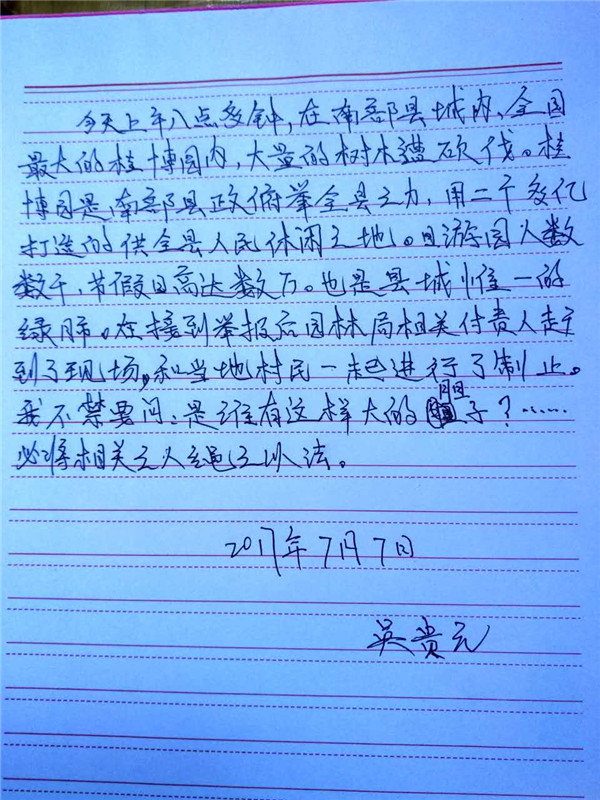 今天上午八点多钟，在南部县城内，全国
最大的桂博园内，大量的树木遭砍伐。桂
博园是南部县政府举全县之力，用二个多亿
打造的供全县人民休闲之地。日游园人数
数千，节假日高达数万。也是县城惟一的
绿肺。在接到举报后园林局相关付责人赶
到了现场，和当地村民一起进行了制止。
我不禁要问：是谁有这样大的胆子？……
必将相关之人绳之以法。
2017年7月7日
吴贵元